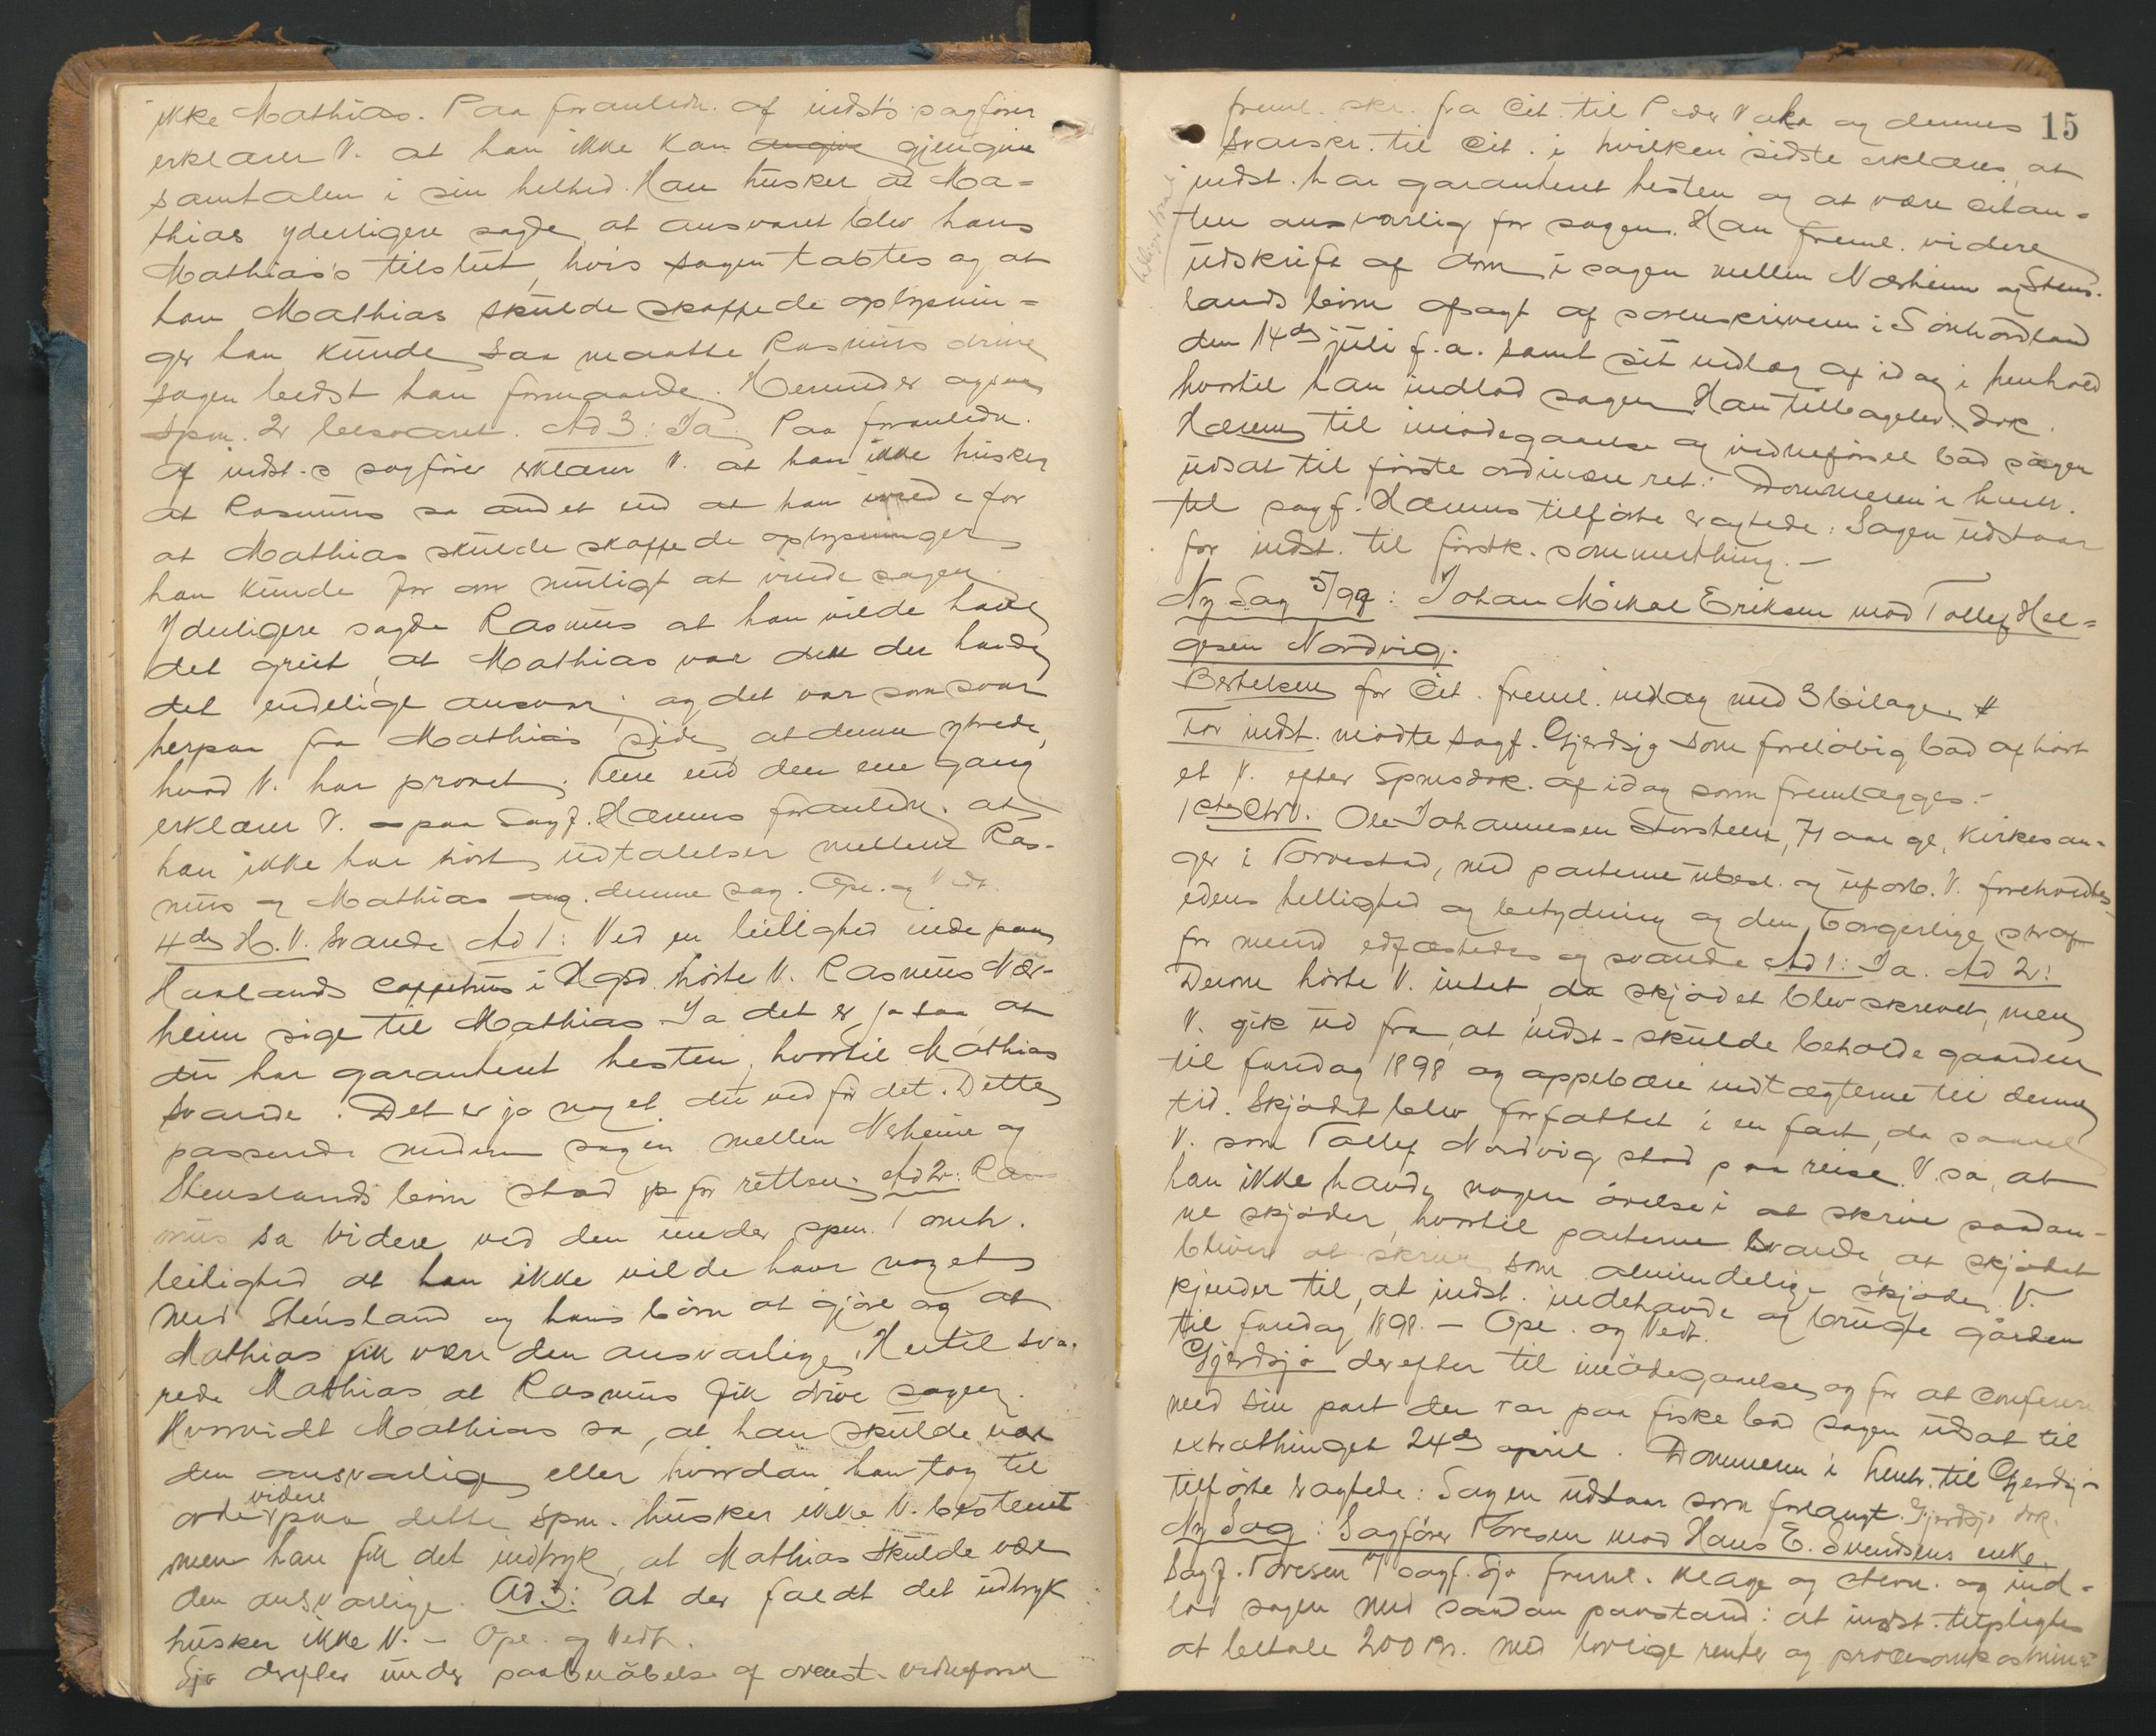 ikke Mathias. Paa foranledn. af indst's sagfører
erklærer V. at han ikke kan angive gjengive
samtalen i sin helhed. Han husker at Ma-
thias yderligere sagde at ansvaret blev hans
Mathias's tilslut, hvis sagen tabtes og at
han Mathias skulde skaffe de oplysnin-
ger han kunde saa maatte Rasmus drive
sagen bedst han formaaede. Herunder ogsaa
spm. 2 besvaret. Ad 3: Ja. Paa foranledn.
af indst.s sagfører erklærer V. at han ikke husker
at Rasmus sa andet end at han
at Mathias skulde skaffe de oplysninger
han kunde for om muligt at vinde sagen.
Yderligere sagde Rasmus at han vilde have
det greit, at Mathias var den der havde
det endelige ansvar; og det var som svar
herpaa fra Mathias side, at denne ytrede,
hvad V. har provet. Flere end den ene gang
erklærer V. paa Sagf. Hærems foranledn. at
han ikke har hørt udtalelser mellem Ras-
mus og Mathias ang. denne sag. Opl. og Vedt.
4de H.V. svarede Ad 1: Ved en leilighed inde paa
Haalands caffehus i Hgsd. hørte V. Rasmus Nær-
heim sige til Mathias Ja det er ja saa, at
du har garanteret hesten, hvortil Mathias
svarede. Det er jo noget du ved før det. Dette
passerede medens sagen mellem Nerheim og
Stenslands børn stod for retten. Ad 2: Ras
mus sa videre ved den under spm. 1 omh.
leilighed at han ikke vilde have noget
med Stensland og hans børn at gjøre og at
Mathias fik være den ansvarlige. Hertil sva-
rede Mathias at Rasmus fik drive sagen.
Hvorvidt Mathias sa, at han skulde være
den ansvarlige eller hvordan han tog til
orde videre paa dette spm. husker ikke V. bestemt
men han fik det indtryk, at Mathias skulde være
den ansvarlige. Ad 3: At der faldt det udtryk
husker ikke V. – Opl. og Vedt.
Sjø derefter under paaberaabelse af ovenst. vidneførsel
15
freml. skr. fra Cit. til Peder Vaka og dennes
svarskr. til Cit. i hvilken sidste erklæres, at
indst. har garanteret hesten og at være citan-
ten ansvarlig for sagen. Han freml. videre
udskrift af dom i sagen mellem Nærheim og Stens-
lands børn afsagt af sorenskriveren i Sønhordland
den 14de juli f.a. samt sit indlæg af idag i henhold
hvortil han indlod sagen. Han tilbagelev. dok.
Hærem til imødegaaelse og vidneførsel bad sagen
udsat til første ordinære ret. Dommeren i henh.
til sagf. Hærems tilførte eragtede: Sagen udstaar
for indst. til førstk. sommerthing. –
Ny Sag 5/99: Johan Mikal Eriksen mod Tollef Hel-
gesen Nordvig.
Bertelsen for Cit. freml. indlæg med 3 bilage.
For indst. mødte sagf. Gjerdsjø som foreløbig bad afhørt
et V. efter Spmsdok. af idag som fremlægges. –
1ste Ctrv. Ole Johannesen Storsteen, 71 aar gl. kirkesan-
ger i Torvestad, med parterne ubesl. og uforb. V. foreholdtes
edens hellighed og betydning og den borgerlige straf
for mened edfæstedes og svarede Ad 1: Ja. Ad 2:
Derom hørte V. intet, da skjødet blev skrevet, men
V. gik ud fra, at indst. skulde beholde gaarden
til faredag 1898 og oppebære indtægterne til denne
tid. Skjødet blev forfattet i en fart, da saavel
V. som Tollef Nordvig stod paa reise. V. sa, at
han ikke havde nogen øvelse i at skrive saadan-
ne skjøder, hvortil parterne svarede, at skjødet
bliver at skrive som almindelige skjøder. V.
kjender til, at indst. indehavde og brugte gården
til faredag 1898. – Opl. og Vedt.
Gjerdsjø derefter til imødegaaelse og for at conferere
med sin part der var paa fiske bad sagen udsat til
extrathinget 24de april. Dommeren i henh. til Gjerdsjø
tilførte eragtede: Sagen udstaar som forlangt. Gjerdsjø dok.
Ny Sag: Sagfører Toresen mod Hans E. Svendsens enke.
Sagf. Toresen v/ sagf. Sjø freml. klage og stevn. og ind-
lod sagen med saadan paastand: at indst. tilpligtes
at betale 200 kr. med lovlige renter og procesomkostnin-